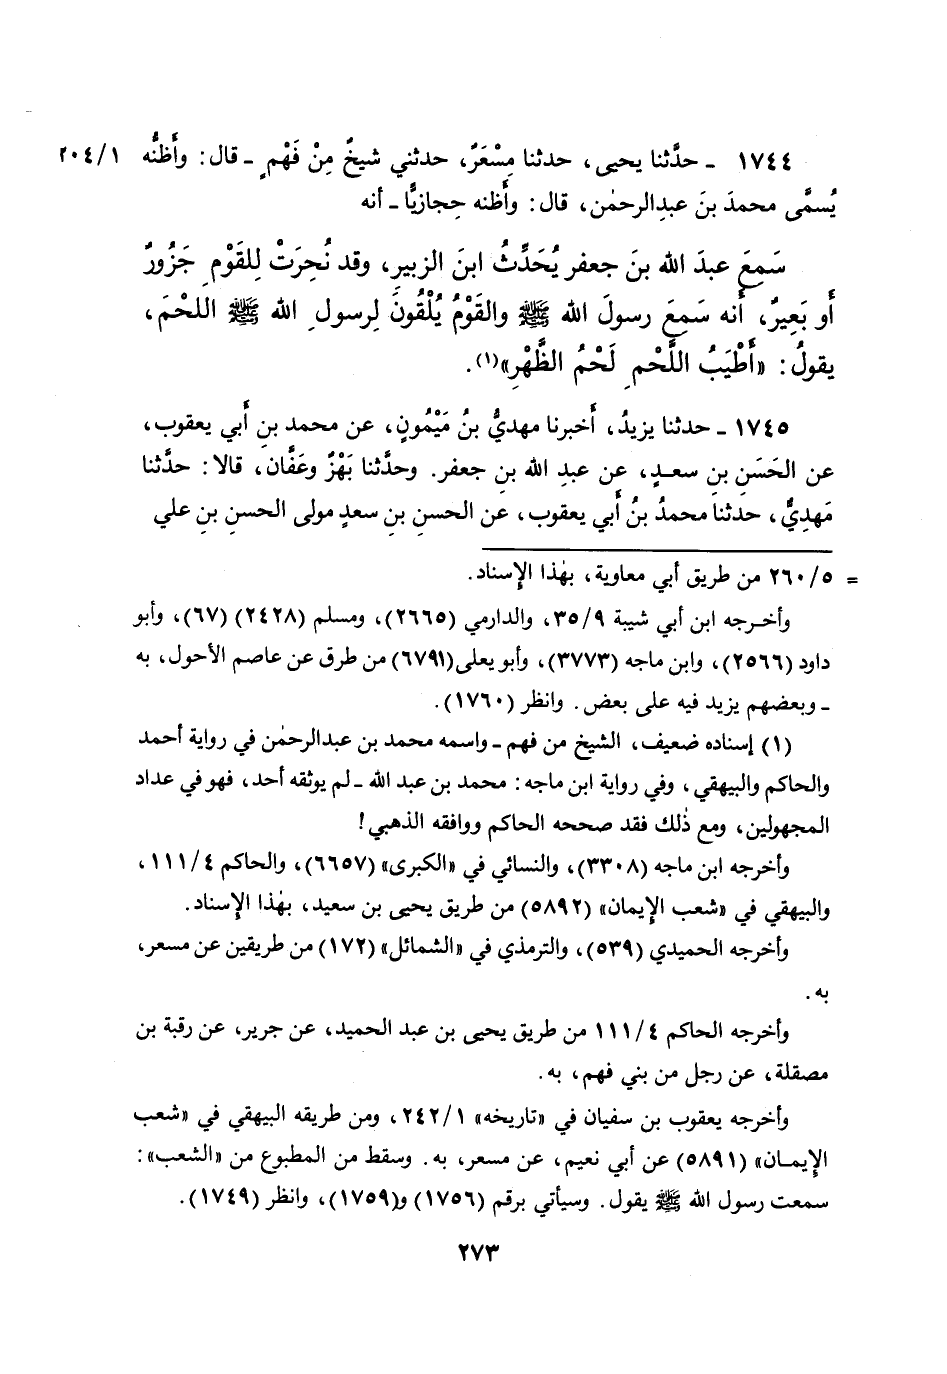 ١٧٤٤ ـ حدَّثنا يحيى، حدثنا مِسْعَرٌ، حدثني شيخٌ مِنْ فَهْمٍ ـ قال: وأَظنُّه ٢٠٤/١
يُسمَّى محمدَ بنَ عبدِالرحمٰن، قال: وأَظنه حِجازيًّا ـ أنه
سَمِعَ عبدَ الله بنَ جعفر يُحَدِّثُ ابنَ الزبير، وقد نُحِرَتْ لِلقَوْمِ جَزُورٌ
أَو بَعِيرٌ، أَنه سَمِعَ رسولَ الله ﷺ والقَوْمُ يُلْقُونَ لِرسولِ الله ﷺ اللحْمَ،
يقولُ: «أَطْيَبُ اللَّحْمِ لَحْمُ الظَّهْرِ»(١).
١٧٤٥ ـ حدثنا يزيدُ، أَخبرنا مهديُّ بنُ مَيْمُونٍ، عن محمد بنِ أَبي يعقوب،
عن الحَسَنِ بنِ سعدٍ، عن عبدِ الله بنِ جعفر. وحدَّثنا بَهْزٌ وعَفَّان، قالا: حدَّثنا
مَهدِيٌّ، حدثنا محمدُ بنُ أَبي يعقوب، عن الحسنِ بنِ سعدٍ مولى الحسنِ بنِ علي
= ٢٦٠/٥ من طريق أبي معاوية، بهٰذا الإسناد.
وأخرجه ابن أبي شيبة ٣٥/٩، والدارمي (٢٦٦٥)، ومسلم (٢٤٢٨) (٦٧)، وأبو
داود (٢٥٦٦)، وابن ماجه (٣٧٧٣)، وأبو يعلى (٦٧٩١) من طرق عن عاصم الأحول، به
ـ وبعضهم يزيد فيه على بعض. وانظر (١٧٦٠).
(١) إسناده ضعيف، الشيخ من فهم ـ واسمه محمد بن عبدالرحمٰن في رواية أحمد
والحاكم والبيهقي، وفي رواية ابن ماجه: محمد بن عبد الله ـ لم يوثقه أحد، فهو في عداد
المجهولين، ومع ذٰلك فقد صححه الحاكم ووافقه الذهبي!
وأخرجه ابن ماجه (٣٣٠٨)، والنسائي في «الكبرى» (٦٦٥٧)، والحاكم ١١١/٤،
والبيهقي في «شعب الإيمان» (٥٨٩٢) من طريق يحيى بن سعيد، بهٰذا الإسناد.
وأخرجه الحميدي (٥٣٩)، والترمذي في «الشمائل» (١٧٢) من طريقين عن مسعر،
به.
وأخرجه الحاكم ١١١/٤ من طريق يحيى بن عبد الحميد، عن جرير، عن رقبة بن
مصقلة، عن رجل من بني فهم، به.
وأخرجه يعقوب بن سفيان في «تاريخه» ٢٤٢/١، ومن طريقه البيهقي في «شعب
الإيمان» (٥٨٩١) عن أبي نعيم، عن مسعر، به. وسقط من المطبوع من «الشعب»:
سمعت رسول الله ﷺ يقول. وسيأتي برقم (١٧٥٦) و(١٧٥٩)، وانظر (١٧٤٩).
٢٧٣